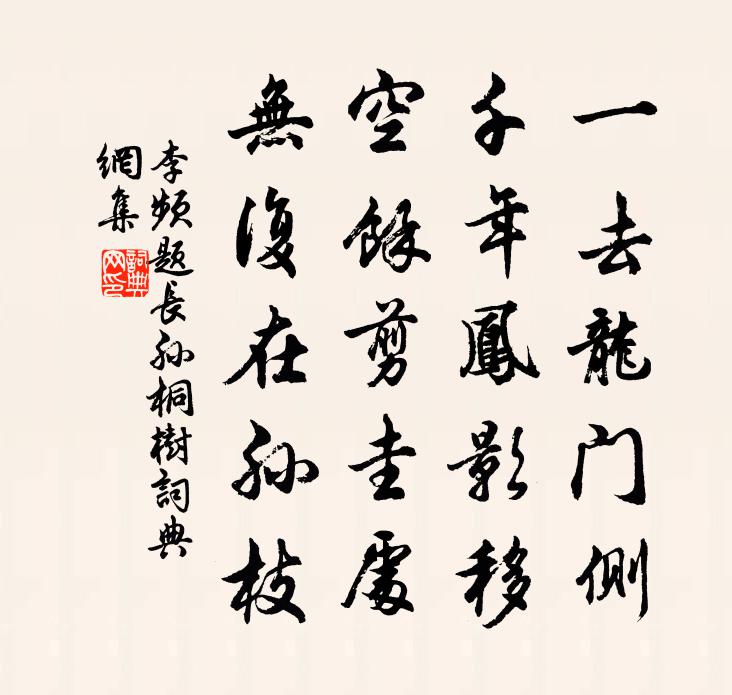 一去龍门側
千年鳳影移
空餘剪圭處
無復在孫枝
李頻题長孫桐樹詞典
網集
詞典
网印